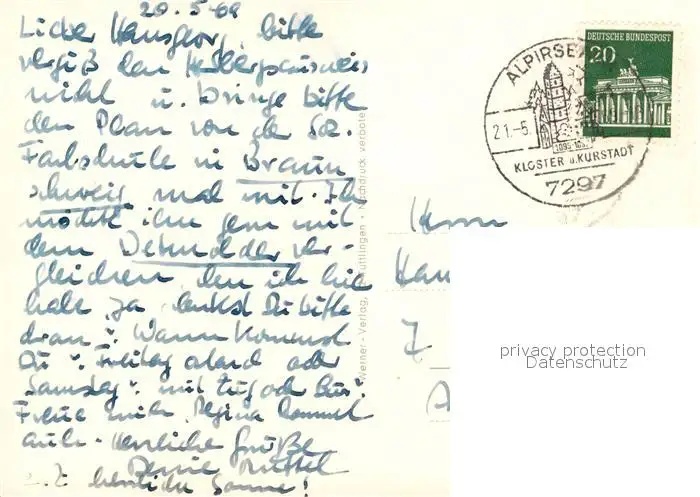 20.5.68
Lieber Hansgeorg, bitte
vergiß den Herbergsausweis
nicht u. bringe bitte
den Plan von de Soz.
Fachschule in Braun
schweig mal mit. Ich
möcht ihn gern mit
dem Detmolder ver-
gleichen, den ich hier
habe ja, denkst Du bitte
dran? Wann kommst
Du? Freitag abend oder
Samstag? mit Zug od Bus?
Freue mich. Regina kommt
auch. Herzliche Grüße
Deine Mutter
z. Z. herrliche Sonne!
Werner-Verlag, Tuttlingen · Nachdruck verboten
DEUTSCHE BUNDESPOST
20
ALPIRSB
21.-5.
1095-
KLOSTER u. KURSTADT
7297
Herrn
Han
7
A
privacy protection
Datenschutz